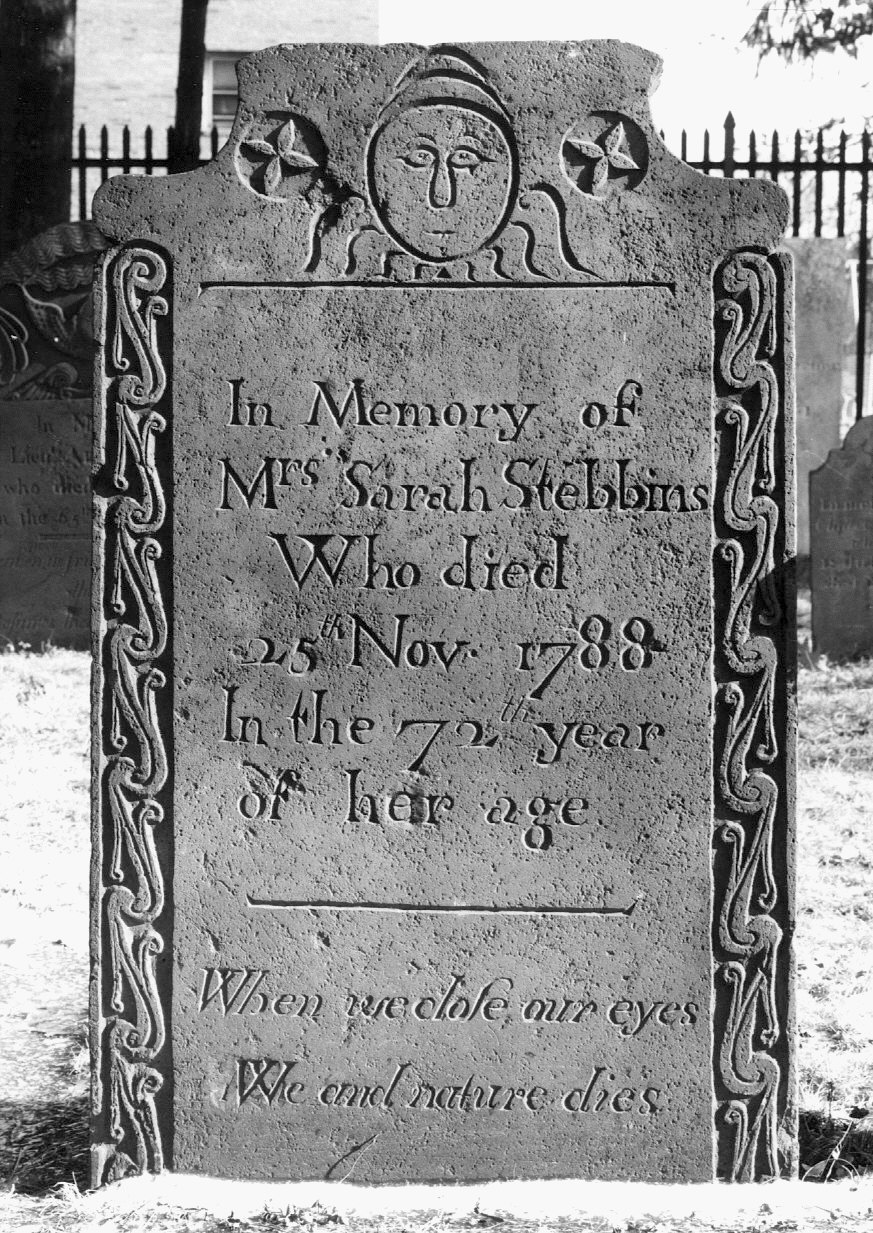 In Memory of
Mrs. Sarah Stebbins
Who died
25th Nov. 1788.
In the 72th year
of her age
When we cloſe our eyes
We and nature dies.
In
Lieut.
who died
in the 65th